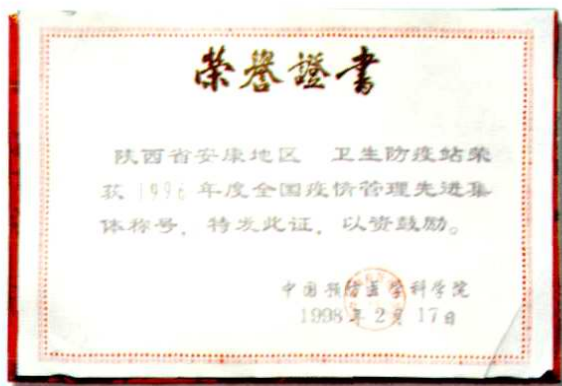 荣誉證書
陕西省安康地区 卫生防疫站荣
获1996年度全国疫情管理先进集
体称号，特发此证，以资鼓励。
中国预防医学科学院
1998年2月17日